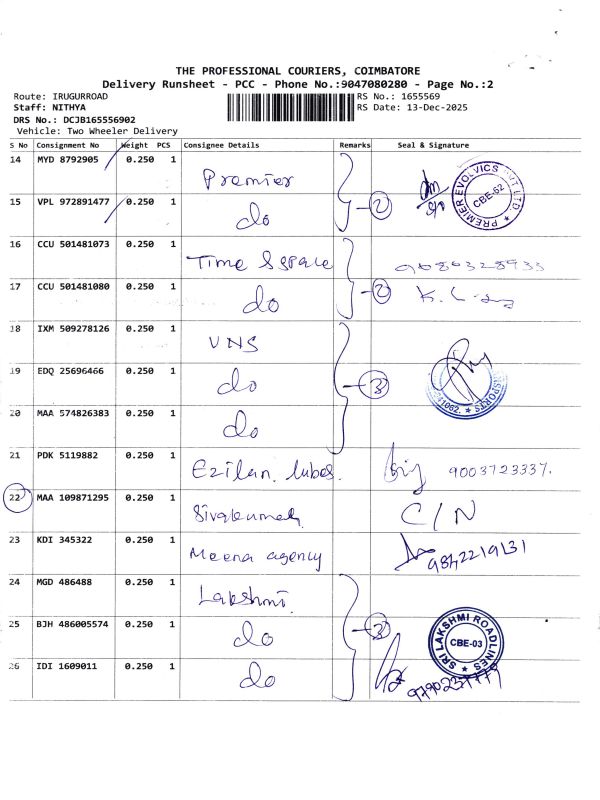 THE PROFESSIONAL COURIERS, COIMBATORE
Delivery Runsheet - PCC - Phone No.:9047080280 - Page No.:2
Route: IRUGURROAD
RS No.: 1655569
Staff: NITHYA
RS Date: 13-Dec-2025
DRS No.: DCJB165556902
Vehicle: Two Wheeler Delivery
S No Consignment No Weight PCS Consignee Details Remarks Seal & Signature
14 MYD 8792905 0.250 1 Premier
15 VPL 972891477 0.250 1 do 2
PREMIER EVOLVICS PVT LTD CBE-62
16 CCU 501481073 0.250 1 Time & space
17 CCU 501481080 0.250 1 do 2
18 IXM 509278126 0.250 1 VNS
19 EDQ 25696466 0.250 1 do 3
20 MAA 574826383 0.250 1 do
21 PDK 5119882 0.250 1 Ezilan lubes. 9003723337.
22 MAA 109871295 0.250 1 Sivakumar C/N
23 KDI 345322 0.250 1 Meena agency 9842219131
24 MGD 486488 0.250 1 Lakshmi
25 BJH 486005574 0.250 1 do 3
SRI LAKSHMI ROADLINES CBE-03
26 IDI 1609011 0.250 1 do